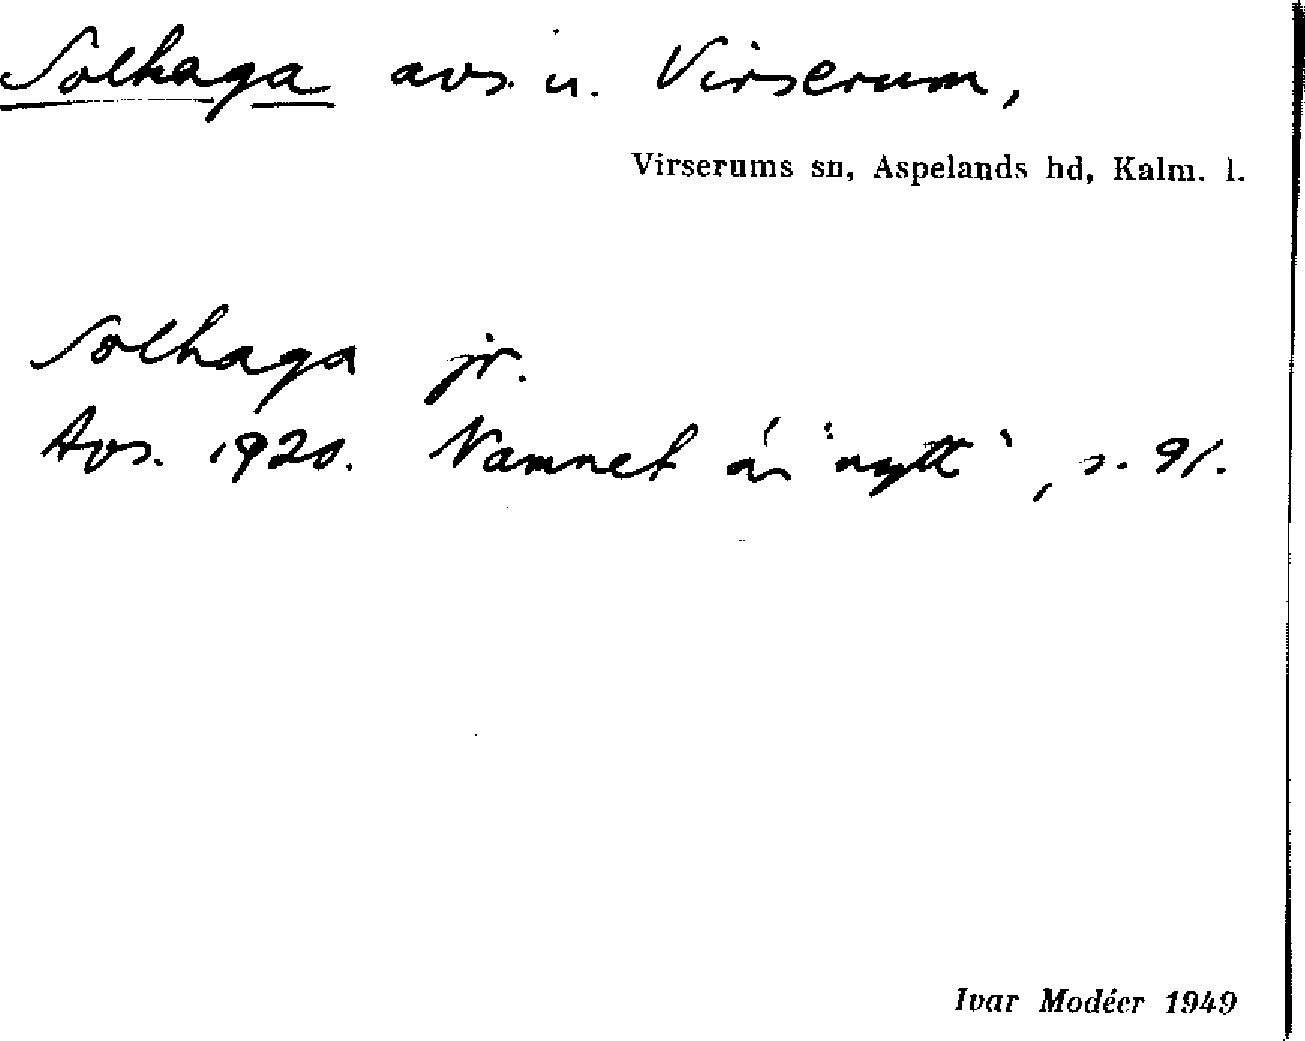 Solhaga avs. u. Virserum,
Virserums sn, Aspelands hd, Kalm. l.
Solhaga jr.
Avs. 1920. Namnet är "nytt", s. 91.
Ivar Modéer 1949